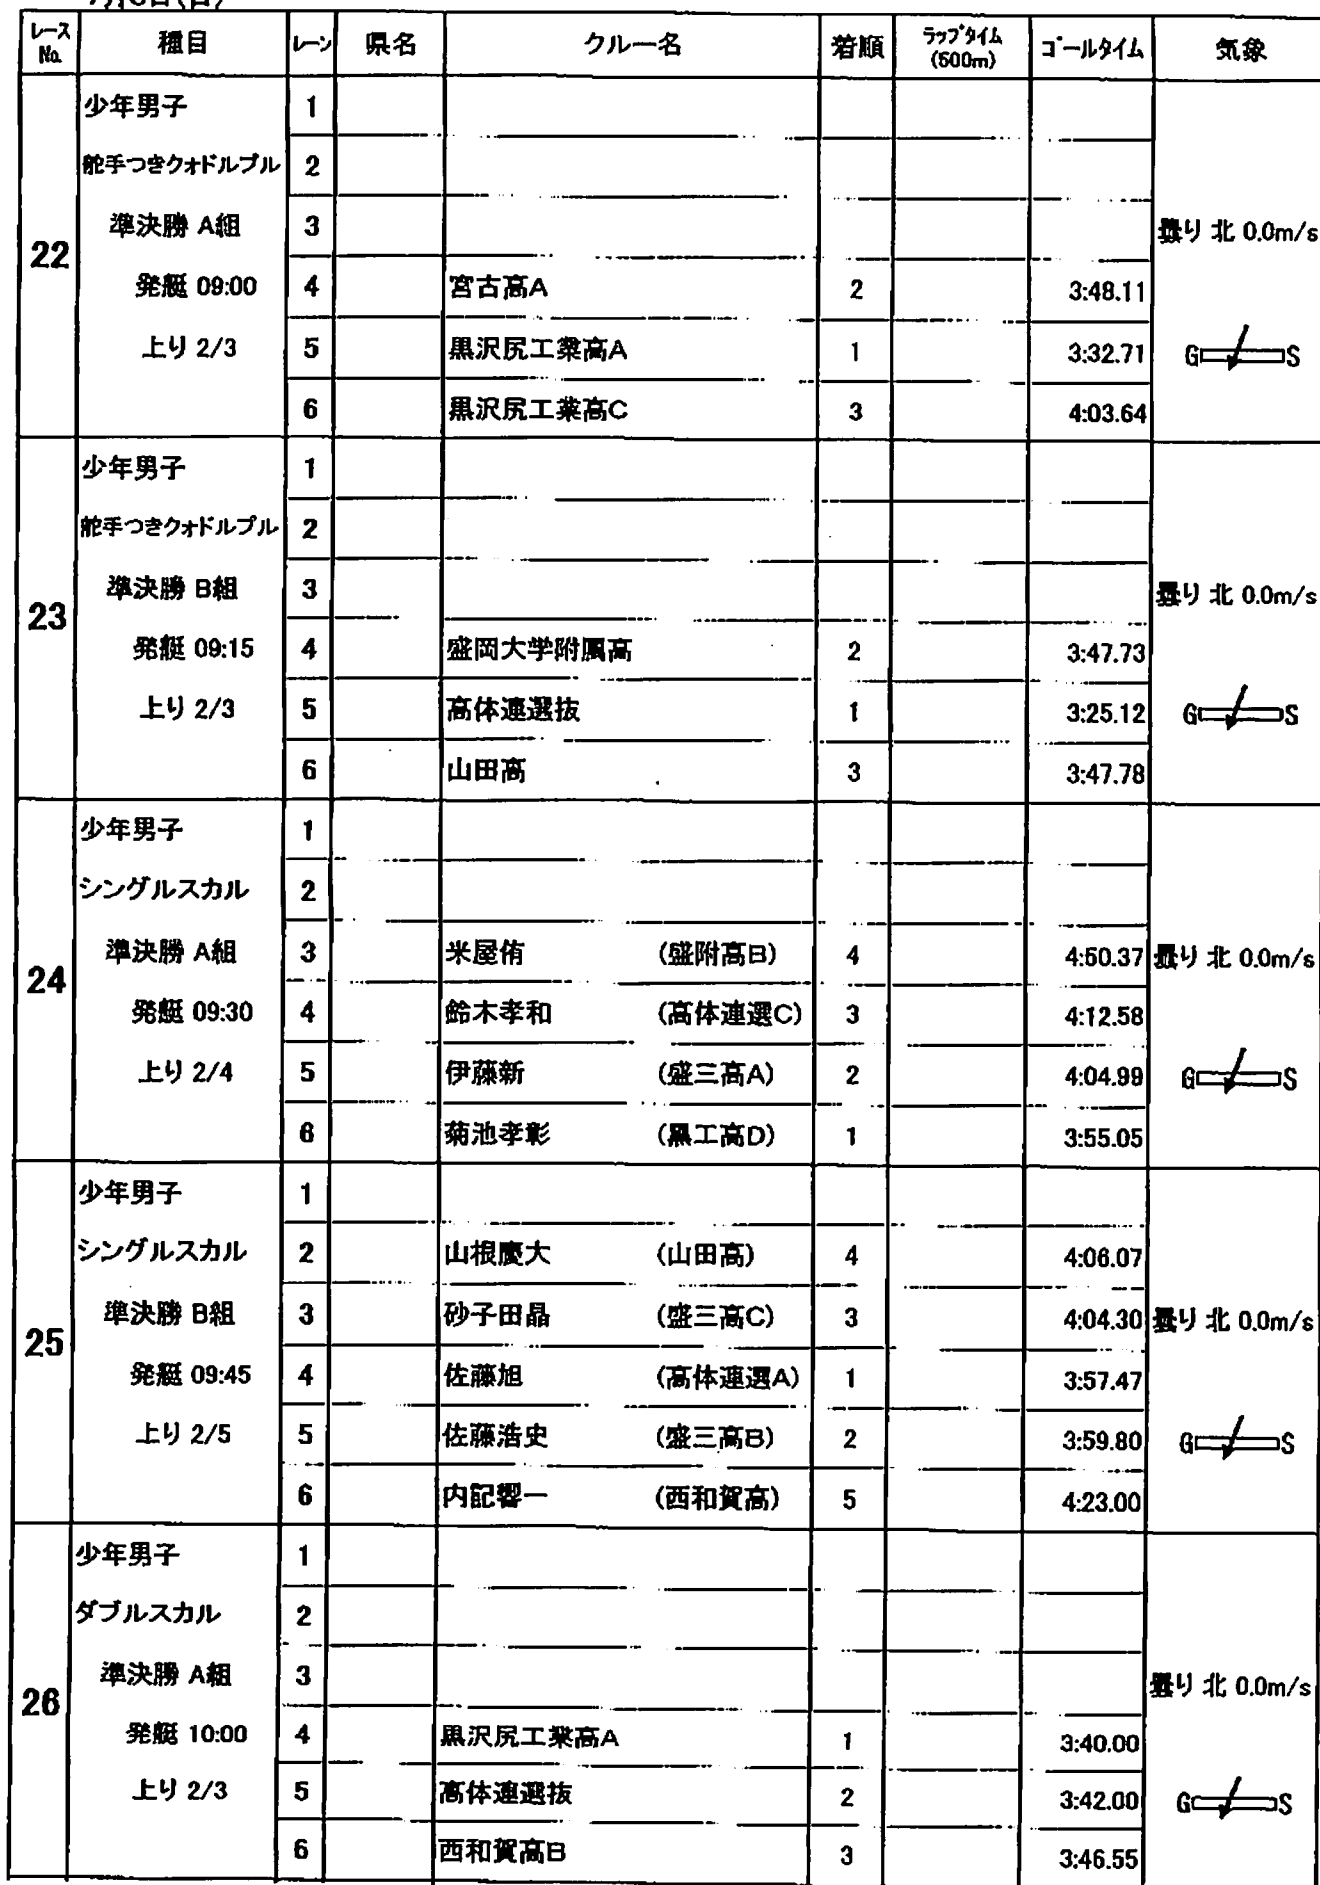 レース No. 種目 レーン 県名 クルー名 着順 ラップタイム (500m) ゴールタイム 気象
22
少年男子 1
舵手つきクォドルプル 2
準決勝 A組 3 曇り 北 0.0m/s
発艇 09:00 4 宮古高A 2 3:48.11
上り 2/3 5 黒沢尻工業高A 1 3:32.71 G S
6 黒沢尻工業高C 3 4:03.64
23
少年男子 1
舵手つきクォドルプル 2
準決勝 B組 3 曇り 北 0.0m/s
発艇 09:15 4 盛岡大学附属高 2 3:47.73
上り 2/3 5 高体連選抜 1 3:25.12 G S
6 山田高 3 3:47.78
24
少年男子 1
シングルスカル 2
準決勝 A組 3 米屋侑 (盛附高B) 4 4:50.37 曇り 北 0.0m/s
発艇 09:30 4 鈴木孝和 (高体連選C) 3 4:12.58
上り 2/4 5 伊藤新 (盛三高A) 2 4:04.99 G S
6 菊池孝彰 (黒工高D) 1 3:55.05
25
少年男子 1
シングルスカル 2 山根慶大 (山田高) 4 4:06.07
準決勝 B組 3 砂子田晶 (盛三高C) 3 4:04.30 曇り 北 0.0m/s
発艇 09:45 4 佐藤旭 (高体連選A) 1 3:57.47
上り 2/5 5 佐藤浩史 (盛三高B) 2 3:59.80 G S
6 内記響一 (西和賀高) 5 4:23.00
26
少年男子 1
ダブルスカル 2
準決勝 A組 3 曇り 北 0.0m/s
発艇 10:00 4 黒沢尻工業高A 1 3:40.00
上り 2/3 5 高体連選抜 2 3:42.00 G S
6 西和賀高B 3 3:46.55